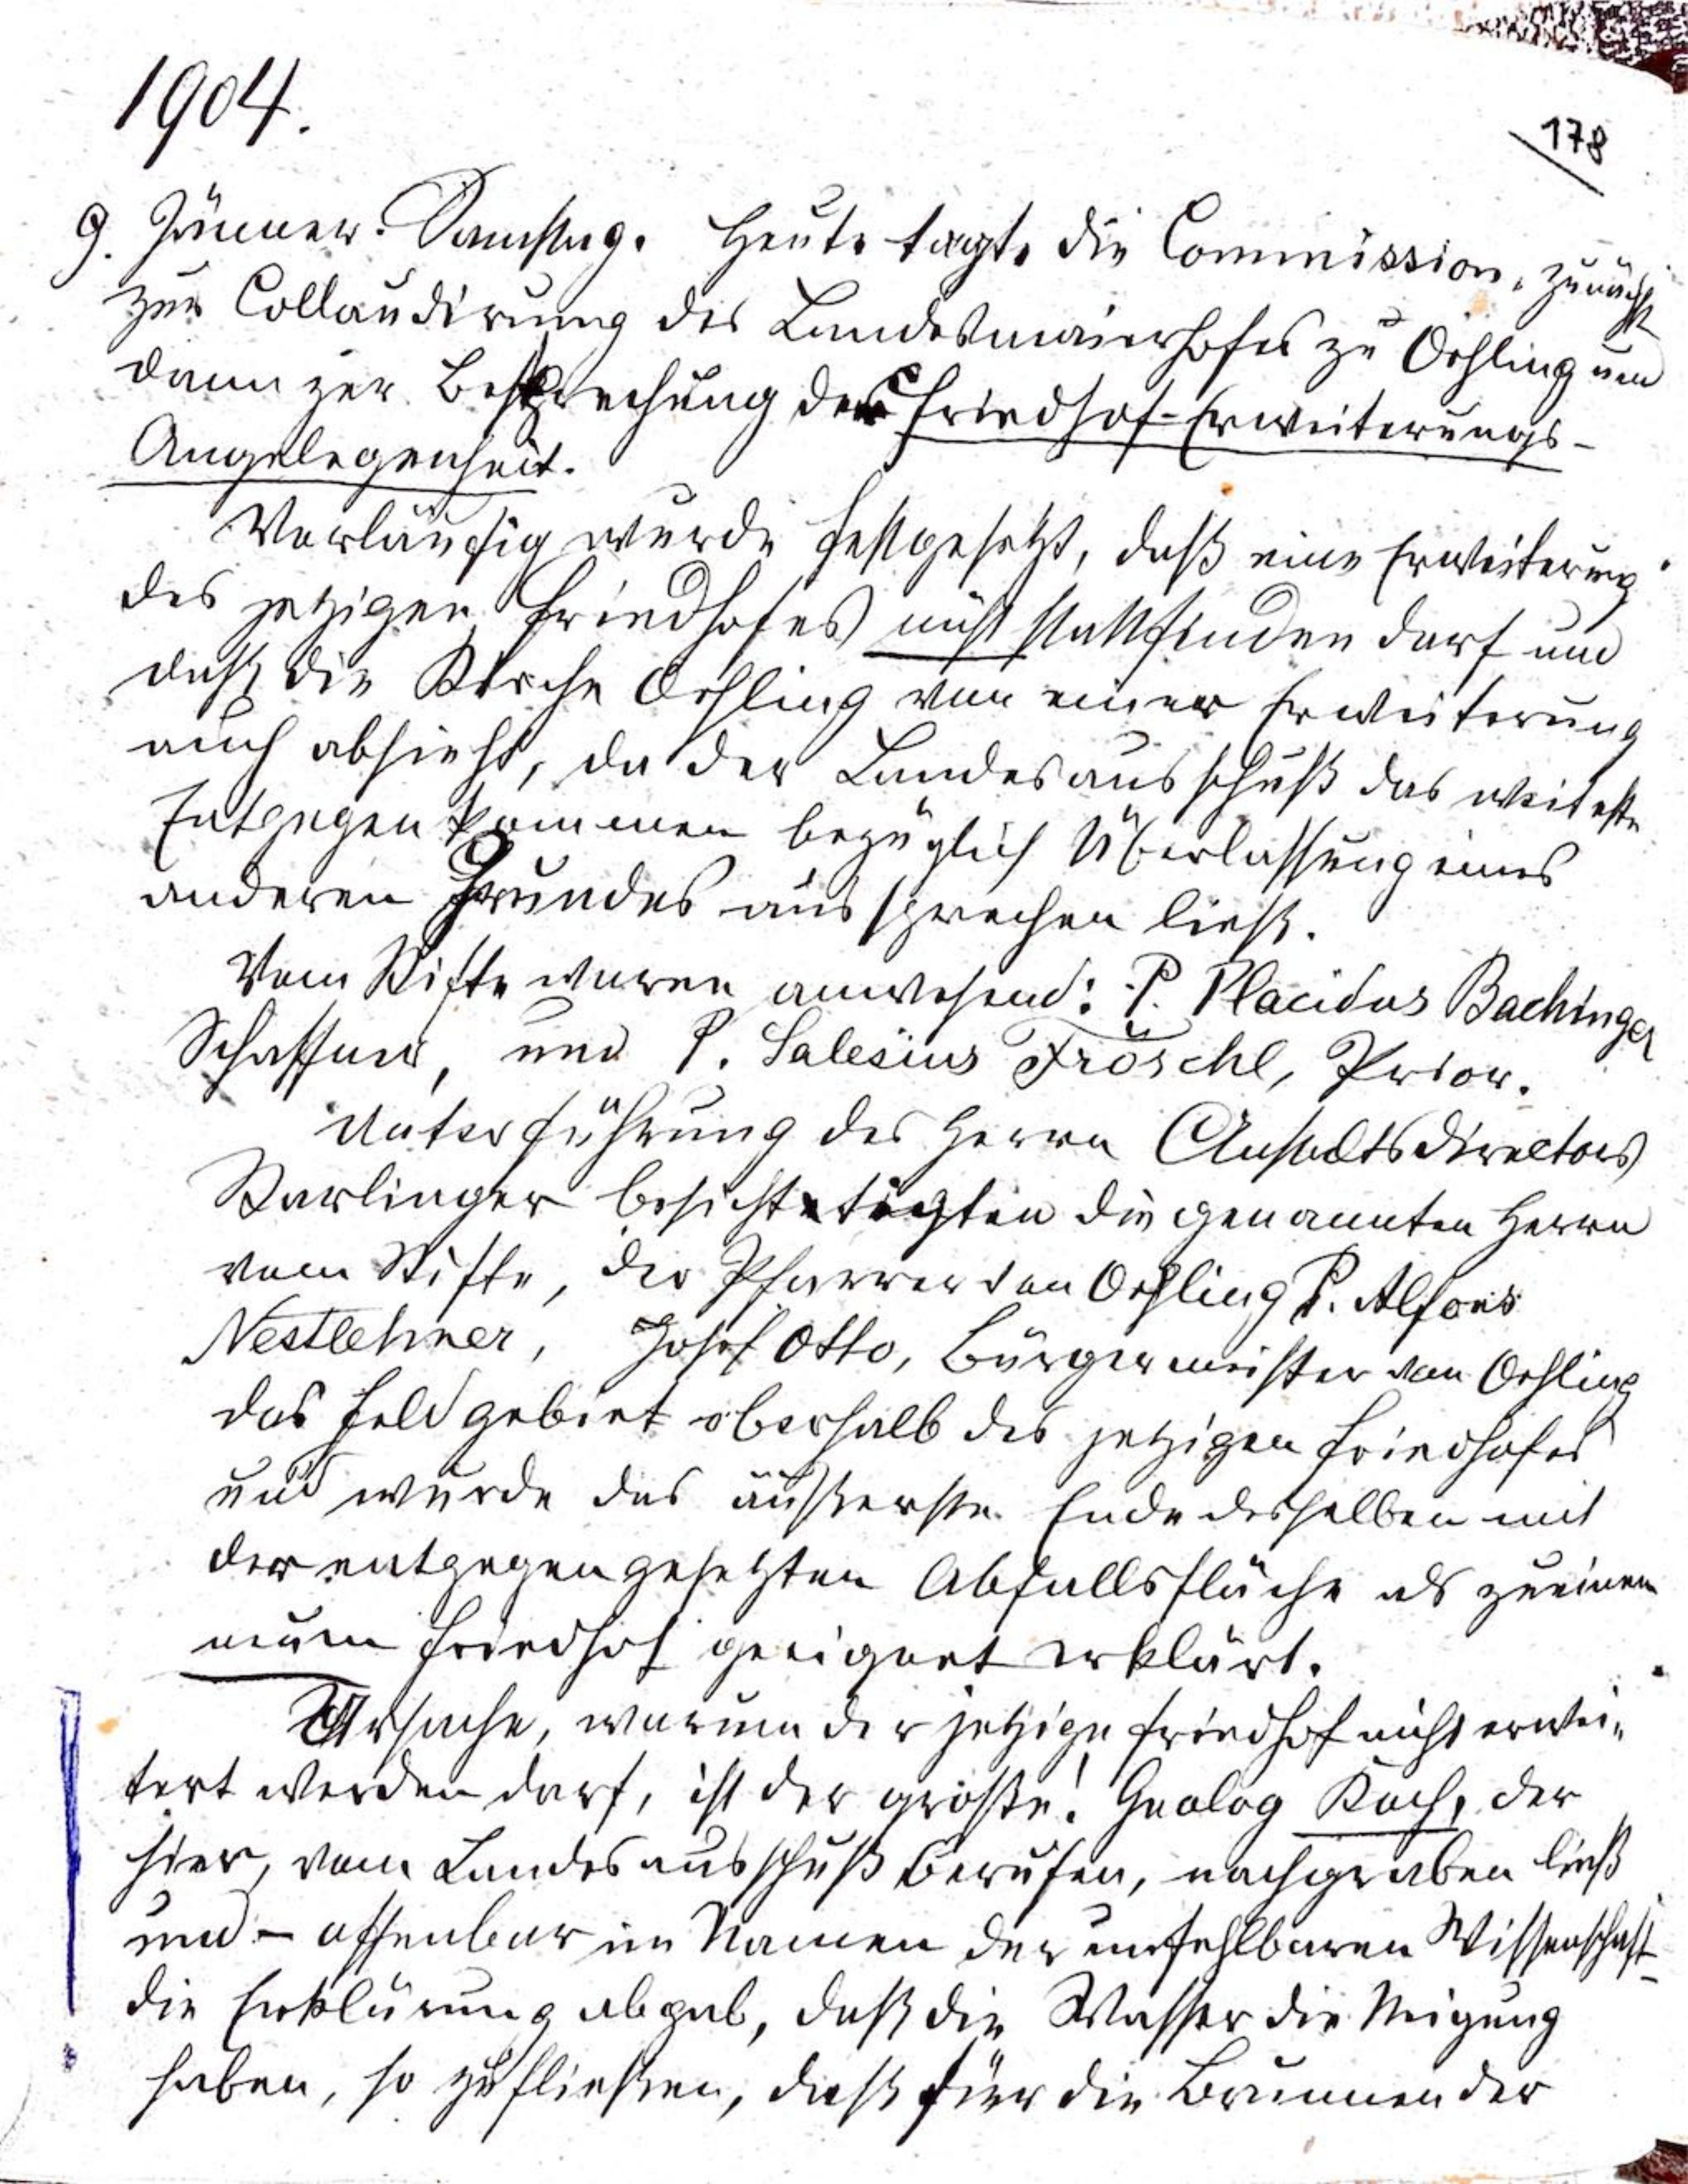 1904.
178
9. Jänner. Samstag. Heute tagte die Commission, zunächst
zur Collaudirung des Landesmaierhofes zu Oehling und
dann zur Besprechung der Friedhof-Erweiterungs-
Angelegenheit.
Vorläufig wurde festgesetzt, daß eine Erweiterung
des jetzigen Friedhofes nicht stattfinden darf und
daß die Kirche Oehling von einer Erweiterung
auch absieht, da der Landesausschuß das weiteste
Entgegenkommen bezüglich Überlassung eines
anderen Grundes aussprechen ließ.
Vom Stifte waren anwesend: P. Placidus Bachinger
Schaffner, und P. Salesius Fröschl, Prior.
Unter Führung des Herrn Anstaltsdirectors
Starlinger besichtigten die genannten Herrn
vom Stifte, der Pfarrer von Oehling P. Alfons
Nestlehner, Josef Otto, Bürgermeister von Oehling
das Feldgebiet oberhalb des jetzigen Friedhofes
und wurde das äußerste Ende desselben mit
der entgegengesetzten Abfallsfläche als zu einem
neuen Friedhof geeignet erklärt.
Ursache, warum der jetzige Friedhof nicht erwei-
tert werden darf, ist der große! Geolog Koch, der
hier, vom Landesausschuß berufen, nachgraben ließ
und - offenbar im Namen der unfehlbaren Wissenschaft -
die Erklärung abgab, daß die Wasser die Neigung
haben, so zu fließen, daß für die Brunnen der